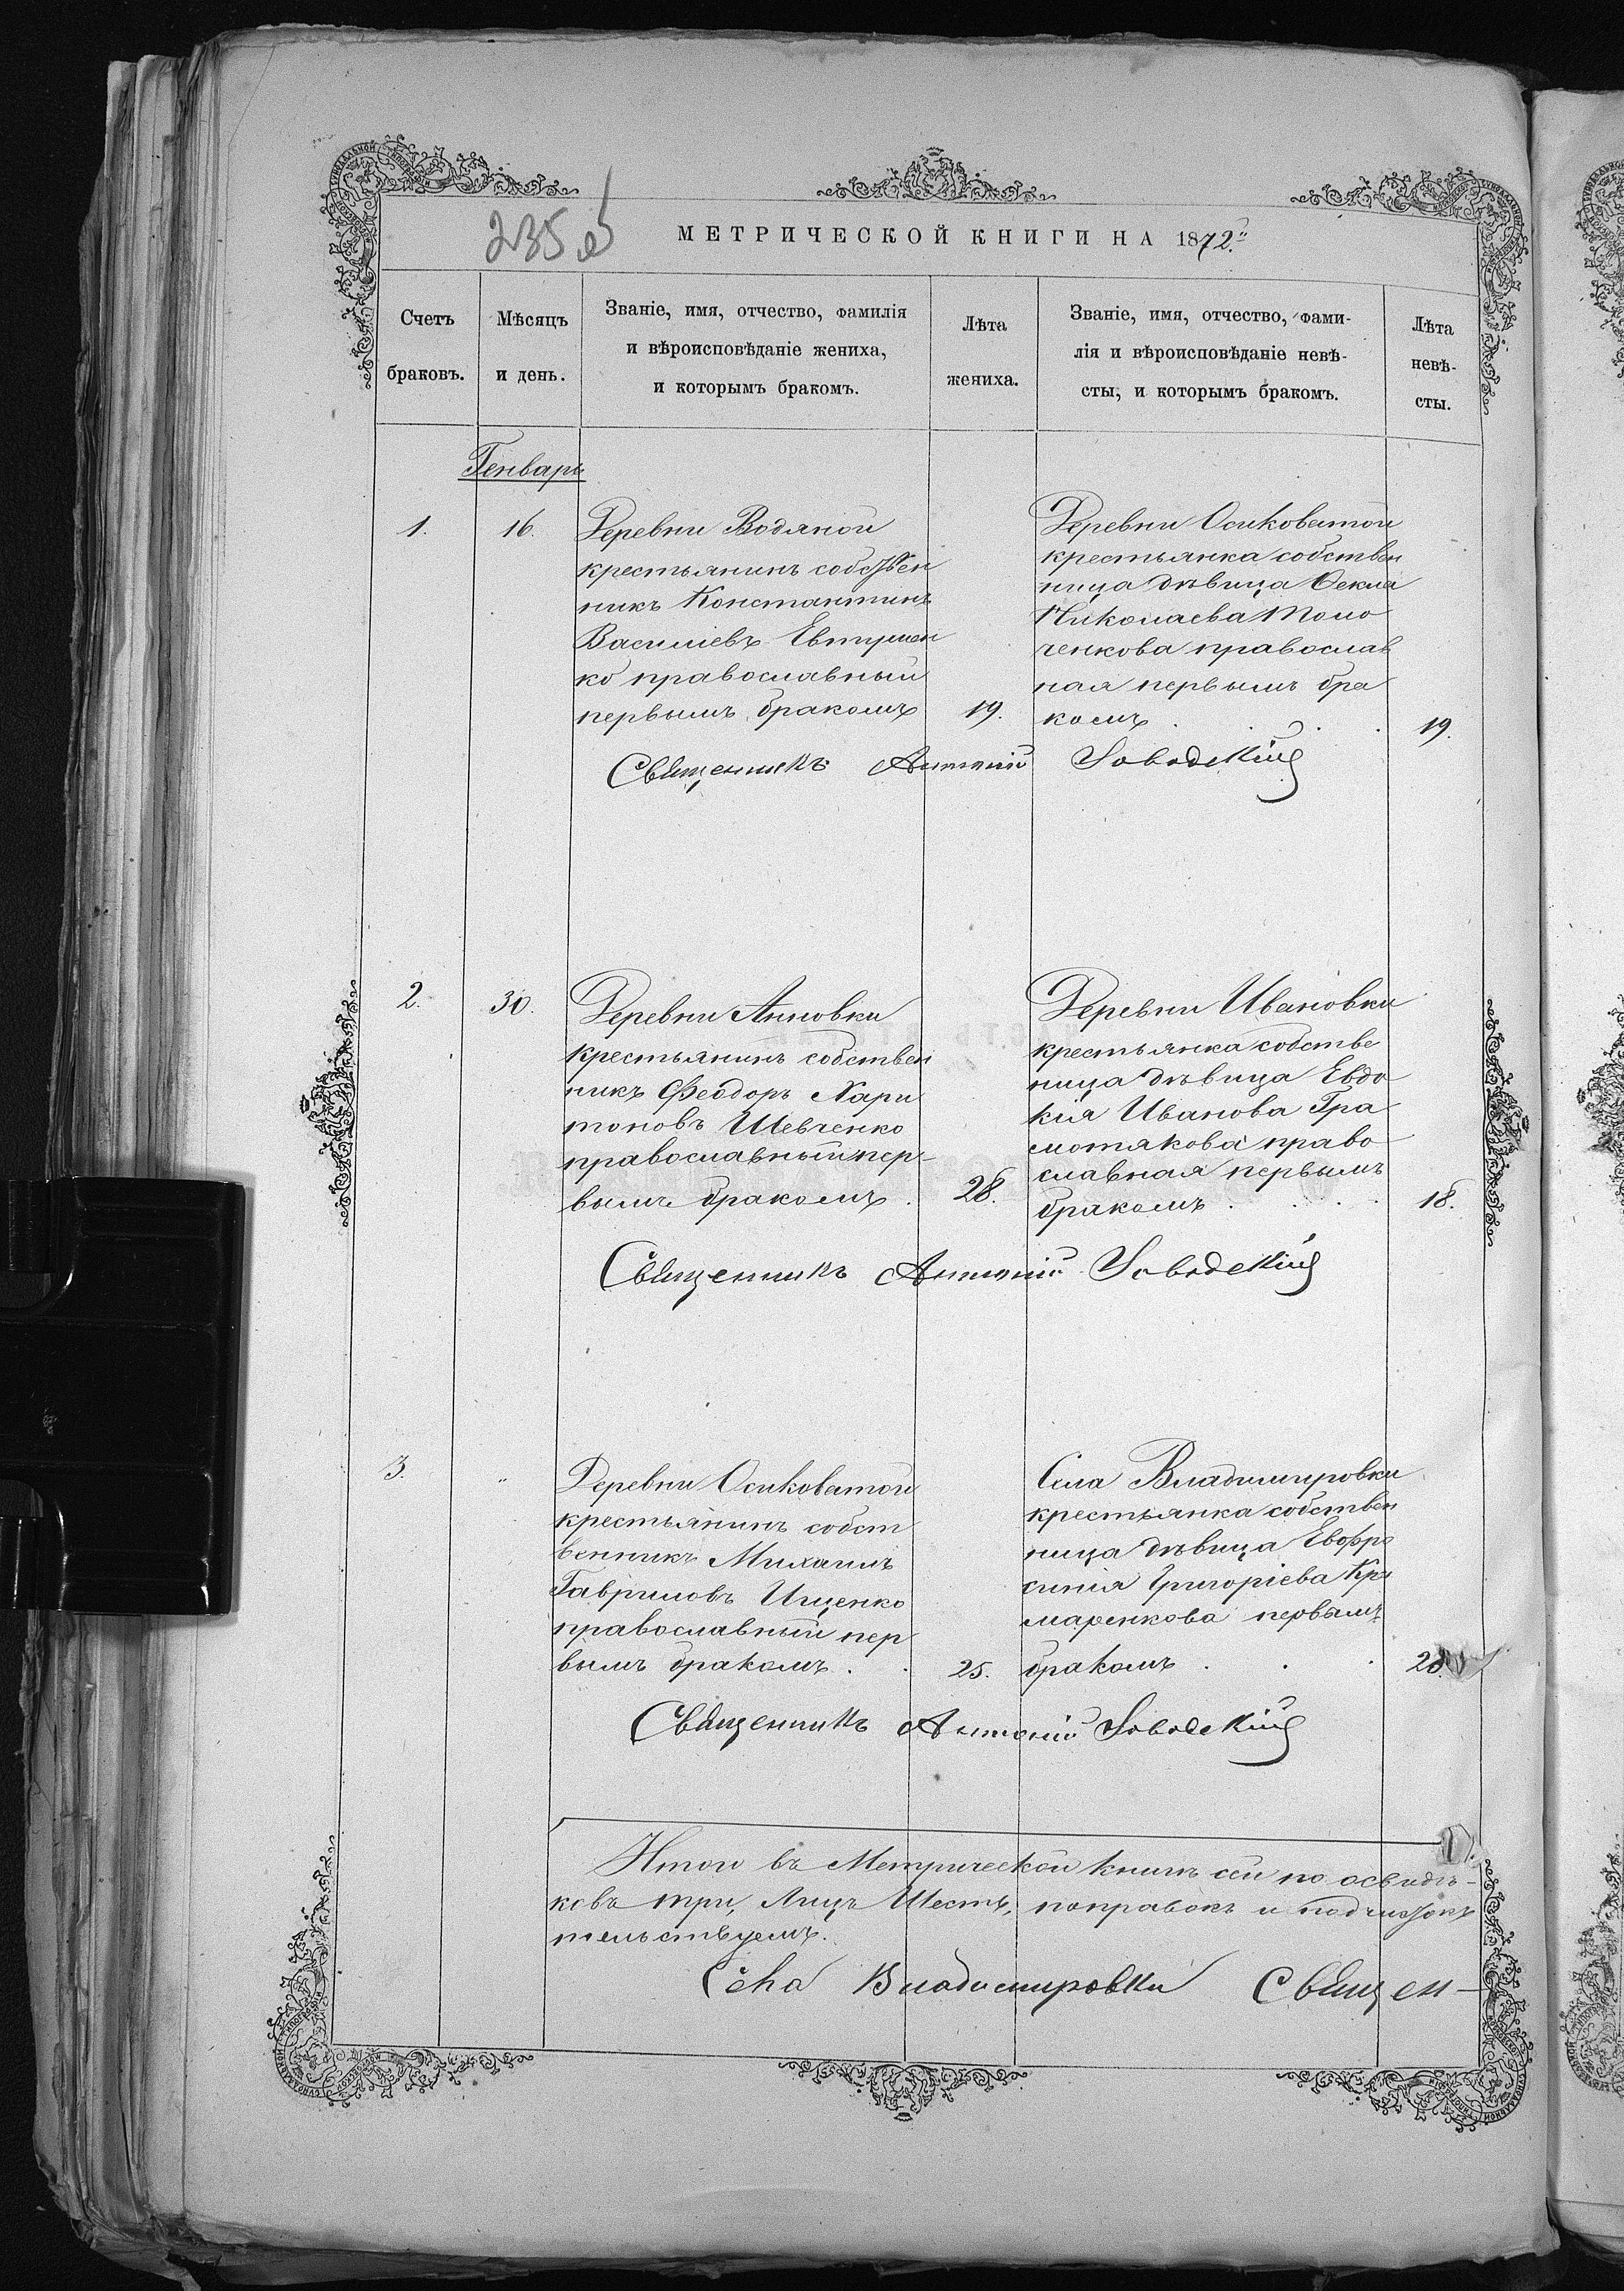 235 об
МЕТРИЧЕСКОЙ КНИГИ НА 1872.й
Счетъ
браковъ.
Мѣсяцъ
и день.
Званіе, имя, отчество, фамилія
и вѣроисповѣданіе жениха,
и которымъ бракомъ.
Лѣта
жениха.
Званіе, имя, отчество, фами-
лія и вѣроисповѣданіе невѣ-
сты, и которымъ бракомъ.
Лѣта
невѣ-
сты.
Генварь
1.
16.
Деревни Водяной
крестьянинъ собствен
никъ Константинъ
Василіевъ Евтушен
ко православный
первымъ бракомъ
19.
Деревни Осиковатой
крестьянка собствен
ница дѣвица Ѳекла
Николаева Толо
ченкова православ
ная первымъ бра
комъ . . . .
19.
Священникъ Антоній
2.
30.
Деревни Анновки
крестьянинъ собствен
никъ Феодоръ Хари
тоновъ Шевченко
православный пер-
вымъ бракомъ .
28.
Деревни Ивановки
крестьянка собстве
ница дѣвица Евдо
кія Иванова Гра
мотякова право
славная первымъ
бракомъ . . . .
18.
Священникъ Антоній
3.
"
Деревни Осиковатой
крестьянинъ собст
венникъ Михаилъ
Гавриловъ Ищенко
православный пер
вымъ бракомъ . .
25.
Села Владимировки
крестьянка собствен
ница дѣвица Евфро
синія Григоріева Кра
маренкова первымъ
бракомъ . . .
20.
Священникъ Антоній
Итого въ Метрической книгѣ сей по освидѣ-
ковъ три, Лицъ Шесть, поправокъ и подчистокъ
тельствуемъ.
Села Владимировки Священ-